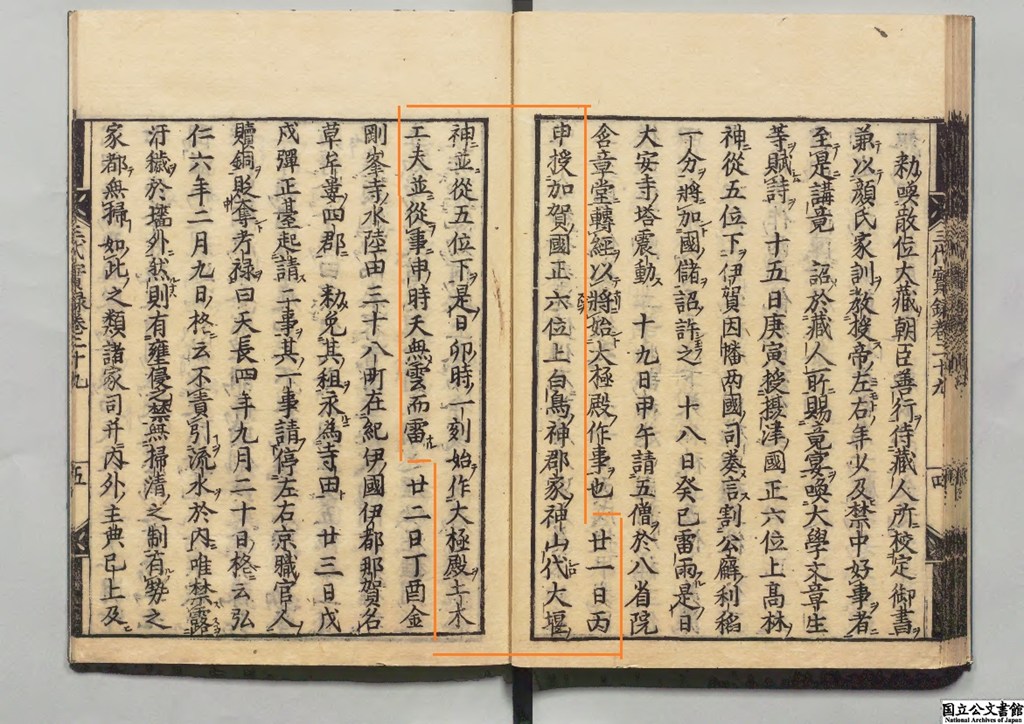 勅喚散位大藏朝臣善行侍藏人所校定御書
兼以顔氏家訓教授帝左右年少及禁中好事者
至是講竟　詔於藏人所賜竟宴喚大學文章生
等賦詩　十五日庚寅授攝津國正六位上髙林
神從五位下伊賀因幡两國司奏言割公廨利稻
十分將加國儲詔許之　十八日癸巳雷雨是日
大安寺塔震動　十九日甲午請五僧於八省院
含章堂轉經以將始大極殿作事也　廿一日丙
申授加賀國正六位上白鳥神郡家神山代大堰
神並從五位下是日卯時一刻始作大極殿土木
工夫並從事申時天無雲而雷　廿二日丁酉金
剛峯寺水陸田三十八町在紀伊國伊都那賀名
草牟婁四郡　勅免其租永為寺田　廿三日戊
戌彈正臺起請二事其一事請停左右京職官人
贖銅貶奪考祿曰天長四年九月二十日格云弘
仁六年二月九日格云不責引流水於内唯禁露
汙穢於墻外然則有壅優之禁無掃清之制有勢之
家都無掃如此之類諸家司并内外主典已上及
三代實録卷二十九
四
三代實録卷二十九
五
国立公文書館
National Archives of Japan